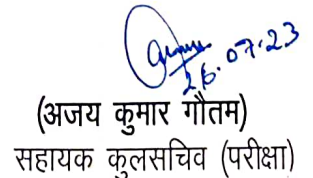 26.07.23
(अजय कुमार गौतम)
सहायक कुलसचिव (परीक्षा)